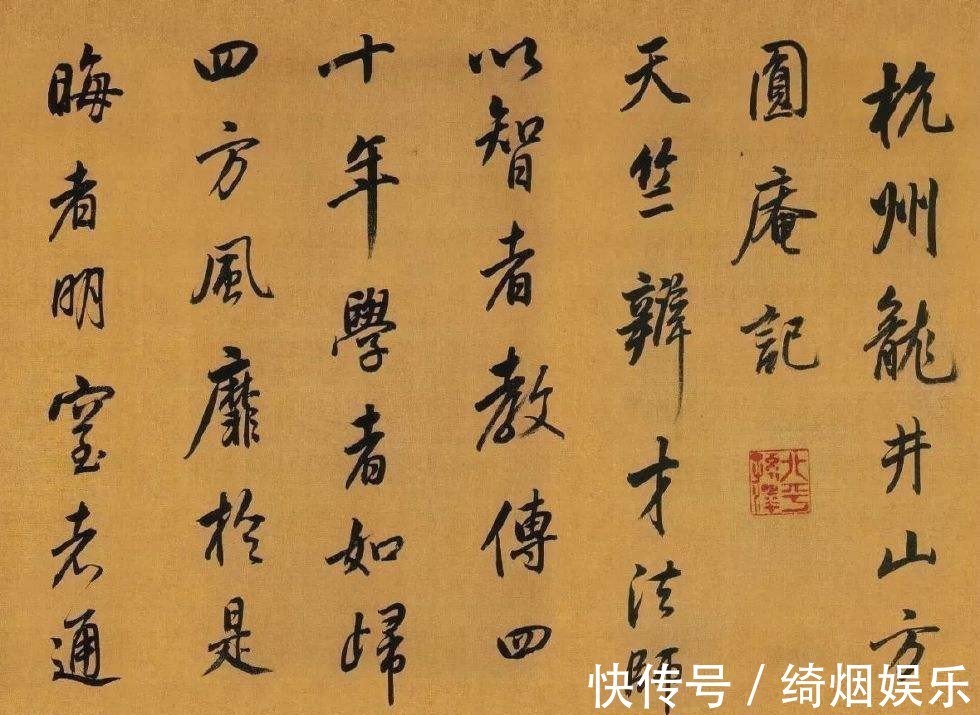 杭州龍井山方
圓庵記
天竺辯才法師
以智者教傳四
十年學者如歸
四方風靡於是
晦者明窒者通
快传号/绮烟娱乐